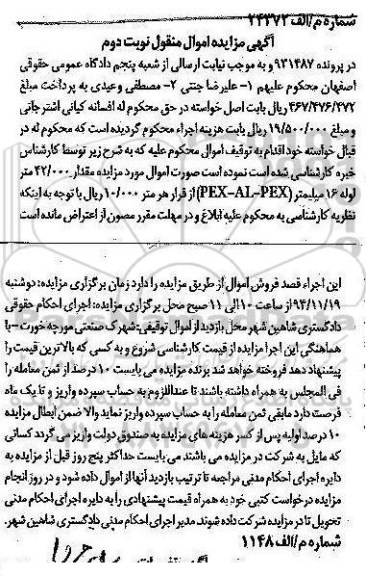 شماره م/الف ۲۴۳۷۲
آگهی مزایده اموال منقول نوبت دوم
در پرونده ۹۳۱۴۸۷ و به موجب نیابت ارسالی از شعبه پنجم دادگاه عمومی حقوقی
اصفهان محکوم علیهم ۱- علیرضا جنتی ۲- مصطفی وعیدی به پرداخت مبلغ
۴۶۷/۴۷۶/۴۷۲ ریال بابت اصل خواسته در حق محکوم له افسانه کیانی اشترجانی
و مبلغ ۱۹/۵۰۰/۰۰۰ ریال بابت هزینه اجراء محکوم گردیده است که محکوم له در
قبال خواسته خود اقدام به توقیف اموال محکوم علیه که به شرح زیر توسط کارشناس
خبره کارشناسی شده است نموده است صورت اموال مورد مزایده مقدار ۴۲/۰۰۰ متر
لوله ۱۶ میلیمتر (PEX-AL-PEX) از قرار هر متر ۱۰/۰۰۰ ریال با توجه به اینکه
نظریه کارشناسی به محکوم علیه ابلاغ و در مهلت مقرر مصون از اعتراض مانده است
این اجراء قصد فروش اموال از طریق مزایده را دارد زمان برگزاری مزایده: دوشنبه
۹۴/۱۱/۱۹ از ساعت ۱۰ الی ۱۱ صبح محل برگزاری مزایده: اجرای احکام حقوقی
دادگستری شاهین شهر محل بازدید از اموال توقیفی: شهرک صنعتی مورچه خورت - با
هماهنگی این اجرا مزایده از قیمت کارشناسی شروع و به کسی که بالاترین قیمت را
پیشنهاد دهد فروخته خواهد شد برنده مزایده می بایست ۱۰ درصد از ثمن معامله را
فی المجلس به همراه داشته باشند تا عنداللزوم به حساب سپرده واریز و تا یک ماه
فرصت دارد مابقی ثمن معامله را به حساب سپرده واریز نماید والا ضمن ابطال مزایده
۱۰ درصد اولیه پس از کسر هزینه های مزایده به صندوق دولت واریز می گردد کسانی
که مایل به شرکت در مزایده می باشند می بایست حداکثر پنج روز قبل از مزایده به
دایره اجرای احکام مدنی مراجعه تا ترتیب بازدید آنها از اموال داده شود و در روز انجام
مزایده درخواست کتبی خود به همراه قیمت پیشنهادی را به دایره اجرای احکام مدنی
تحویل تا در مزایده شرکت داده شوند مدیر اجرای احکام مدنی دادگستری شاهین شهر.
شماره م/الف ۱۱۴۸